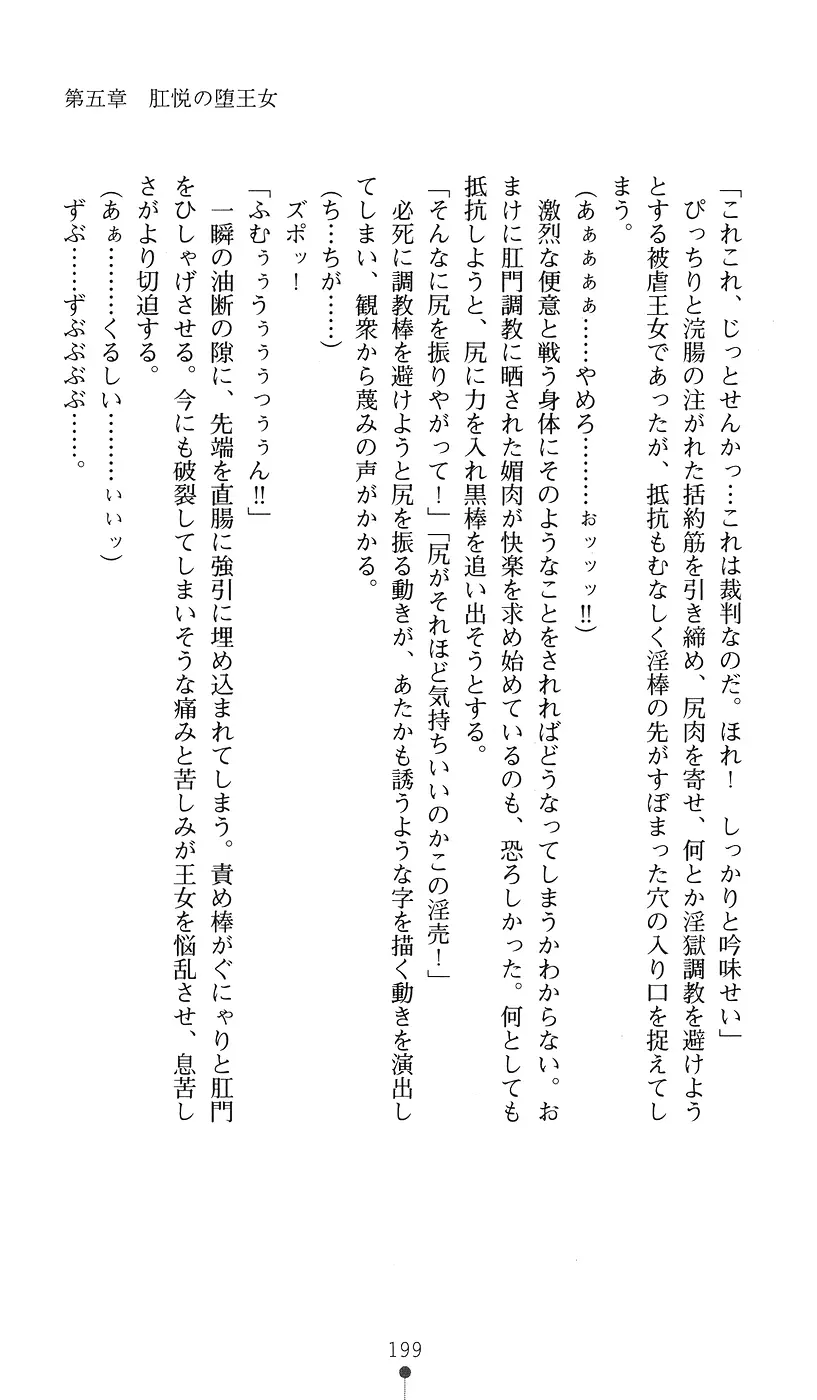 第五章　肛悦の堕王女
「これこれ、じっとせんかっ…これは裁判なのだ。ほれ！　しっかりと吟味せい」
　ぴっちりと浣腸の注がれた括約筋を引き締め、尻肉を寄せ、何とか淫獄調教を避けよう
とする被虐王女であったが、抵抗もむなしく淫棒の先がすぼまった穴の入り口を捉えてし
まう。
（あぁぁぁぁ……やめろ………ぉッッッ!!）
　激烈な便意と戦う身体にそのようなことをされればどうなってしまうかわからない。お
まけに肛門調教に晒された媚肉が快楽を求め始めているのも、恐ろしかった。何としても
抵抗しようと、尻に力を入れ黒棒を追い出そうとする。
「そんなに尻を振りやがって！」「尻がそれほど気持ちいいのかこの淫売！」
　必死に調教棒を避けようと尻を振る動きが、あたかも誘うような字を描く動きを演出し
てしまい、観衆から蔑みの声がかかる。
（ち…ちが……）
　ズポッ！
「ふむぅぅうぅぅぅつぅぅん!!」
　一瞬の油断の隙に、先端を直腸に強引に埋め込まれてしまう。責め棒がぐにゃりと肛門
をひしゃげさせる。今にも破裂してしまいそうな痛みと苦しみが王女を悩乱させ、息苦し
さがより切迫する。
（あぁ………くるしい………ぃぃッ）
　ずぶ……ずぶぶぶぶ……。
199